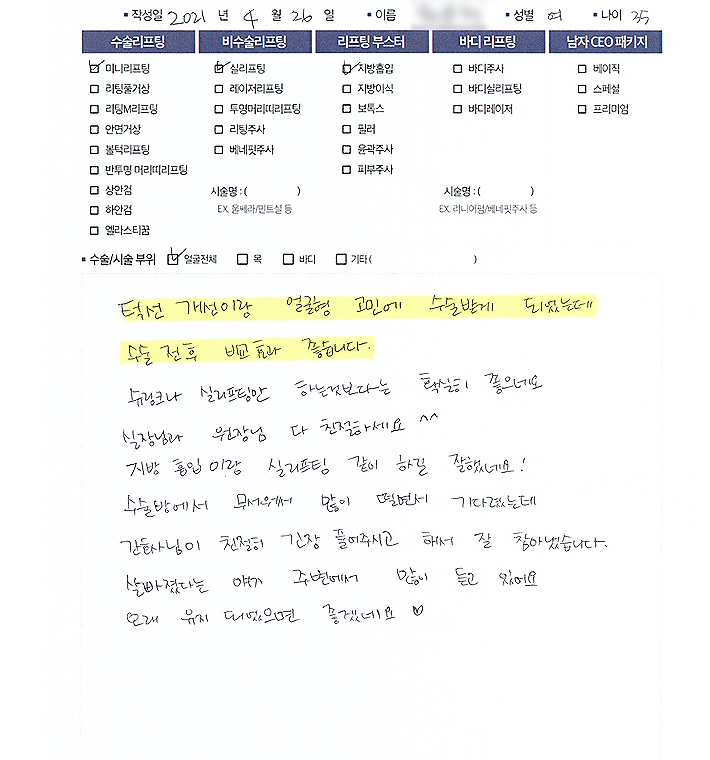 ▪ 작성일 2021 년 4 월 26 일 ▪ 이름 ▪ 성별 여 ▪ 나이 35
수술리프팅 비수술리프팅 리프팅 부스터 바디 리프팅 남자 CEO 패키지
☑ 미니리프팅 ☑ 실리프팅 ☑ 지방흡입 ☐ 바디주사 ☐ 베이직
☐ 리팅풀거상 ☐ 레이저리프팅 ☐ 지방이식 ☐ 바디실리프팅 ☐ 스페셜
☐ 리팅M리프팅 ☐ 투명머리띠리프팅 ☐ 보톡스 ☐ 바디레이저 ☐ 프리미엄
☐ 안면거상 ☐ 리팅주사 ☐ 필러
☐ 볼턱리프팅 ☐ 베네핏주사 ☐ 윤곽주사
☐ 반투명 머리띠리프팅 ☐ 피부주사
☐ 상안검 시술명 : ( ) 시술명 : ( )
☐ 하안검 EX. 울쎄라/민트실 등 EX. 리니어펌/베네핏주사 등
☐ 엘라스티꿈
▪ 수술/시술 부위 ☑ 얼굴전체 ☐ 목 ☐ 바디 ☐ 기타 ( )
턱선 개선이랑 얼굴형 고민에 수술받게 되었는데
수술 전후 비교 효과 좋습니다.
슈링크나 실리프팅만 하는것보다는 확실히 좋으네요
실장님과 원장님 다 친절하세요 ^^
지방 흡입이랑 실리프팅 같이 하길 잘했네요!
수술방에서 무서워서 많이 떨면서 기다렸는데
간호사님이 친절히 긴장 풀어주시고 해서 잘 참아냈습니다.
살빠졌다는 얘기 주변에서 많이 듣고 있어요
오래 유지 되었으면 좋겠네요 ♡